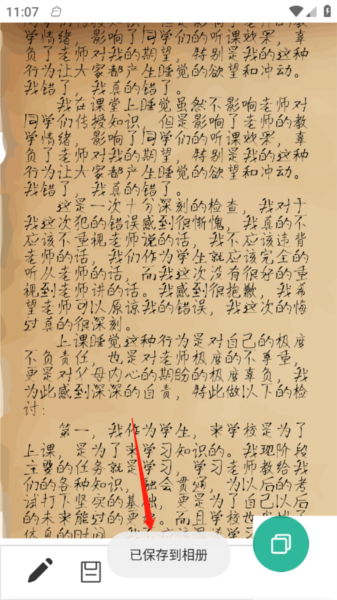 11:07
教学情绪，影响了同学们的听课效果，辜
负了老师对我的期望，特别是我的这种
行为让大家都产生睡觉的欲望和冲动。
我错了，我真的错了。
我在课堂上睡觉虽然不影响老师对
同学们传授知识，但是影响了老师的教
学情绪，影响了同学们的听课效果，辜
负了老师对我的期望，特别是我的这种
行为让大家都产生睡觉的欲望和冲动。
我错了，我真的错了。
这是一次十分深刻的检查，我对于
我这次犯的错误感到很惭愧，我真的不
应该不重视老师说的话，我不应该违背
老师的话，我们作为学生就应该完全的
听从老师的话，而我这次没有很好的重
视到老师讲的话。我感到很抱歉，我希
望老师可以原谅我的错误，我这次的悔
过真的很深刻。
上课睡觉这种行为是对自己的极度
不负责任，也是对老师极度的不尊重，
更是对父母内心的期盼的极度辜负，我
为此感到深深的自责，特此做以下的检
讨：
第一，我作为学生，来学校是为了
上课，是为了来学习知识的。我现阶段
主要的任务就是学习，学习老师教给我
们的各种知识，融会贯通，为以后的考
试打下坚实的基础，更是为了自己以后
的未来能过的更
而且学校也
休息的时间
已保存到相册